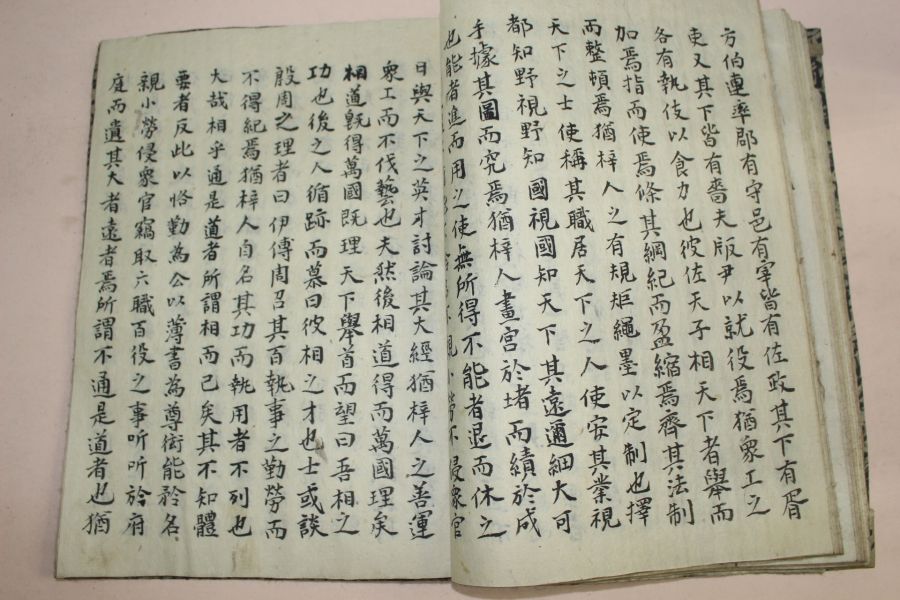 方伯連率郡有守邑有宰皆有佐政其下有胥
吏又其下皆有嗇夫版尹以就役焉猶衆工之
各有執伎以食力也彼佐天子相天下者舉而
加焉指而使焉條其綱紀而盈縮焉齊其法制
而整頓焉猶梓人之有規矩繩墨以定制也擇
天下之士使稱其職居天下之人使安其業視
都知野視野知國視國知天下其遠邇細大可
手據其圖而究焉猶梓人畫宮於堵而績於成
也能者進而用之使無所得不能者退而休之
日與天下之英才討論其大經猶梓人之善運
衆工而不伐藝也夫然後相道得而萬國理矣
相道旣得萬國既理天下舉首而望曰吾相之
功也後之人循跡而慕曰彼相之才也士或談
殷周之理者曰伊傅周召其百執事之勤勞而
不得紀焉猶梓人自名其功而執用者不列也
大哉相乎通是道者所謂相而已矣其不知體
要者反此以恪勤為公以薄書為尊衒能矜名
親小勞侵衆官竊取六職百役之事听听於府
庭而遺其大者遠者焉所謂不通是道者也猶